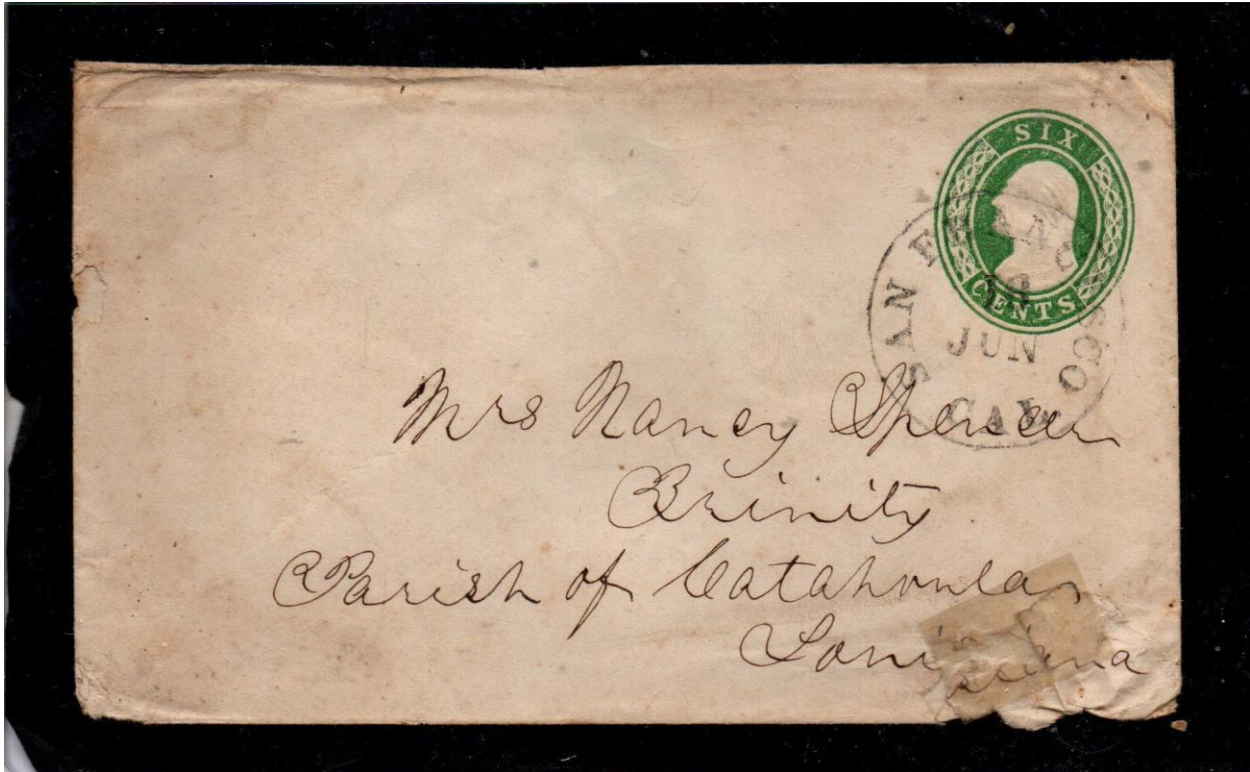 SIX
CENTS
SAN FRANCISCO
JUN
CAL
Mrs Nancy Spencer
Trinity
Parish of Catahoula
Louisiana